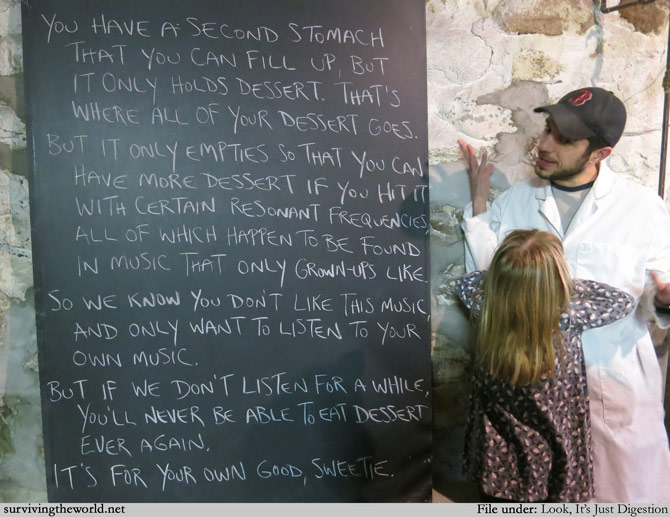 YOU HAVE A SECOND STOMACH
THAT YOU CAN FILL UP, BUT
IT ONLY HOLDS DESSERT. THAT'S
WHERE ALL OF YOUR DESSERT GOES.
BUT IT ONLY EMPTIES SO THAT YOU CAN
HAVE MORE DESSERT IF YOU HIT IT
WITH CERTAIN RESONANT FREQUENCIES,
ALL OF WHICH HAPPEN TO BE FOUND
IN MUSIC THAT ONLY GROWN-UPS LIKE.
SO WE KNOW YOU DON'T LIKE THIS MUSIC,
AND ONLY WANT TO LISTEN TO YOUR
OWN MUSIC.
BUT IF WE DON'T LISTEN FOR A WHILE,
YOU'LL NEVER BE ABLE TO EAT DESSERT
EVER AGAIN.
IT'S FOR YOUR OWN GOOD, SWEETIE.
B
survivingtheworld.net
File under: Look, It's Just Digestion